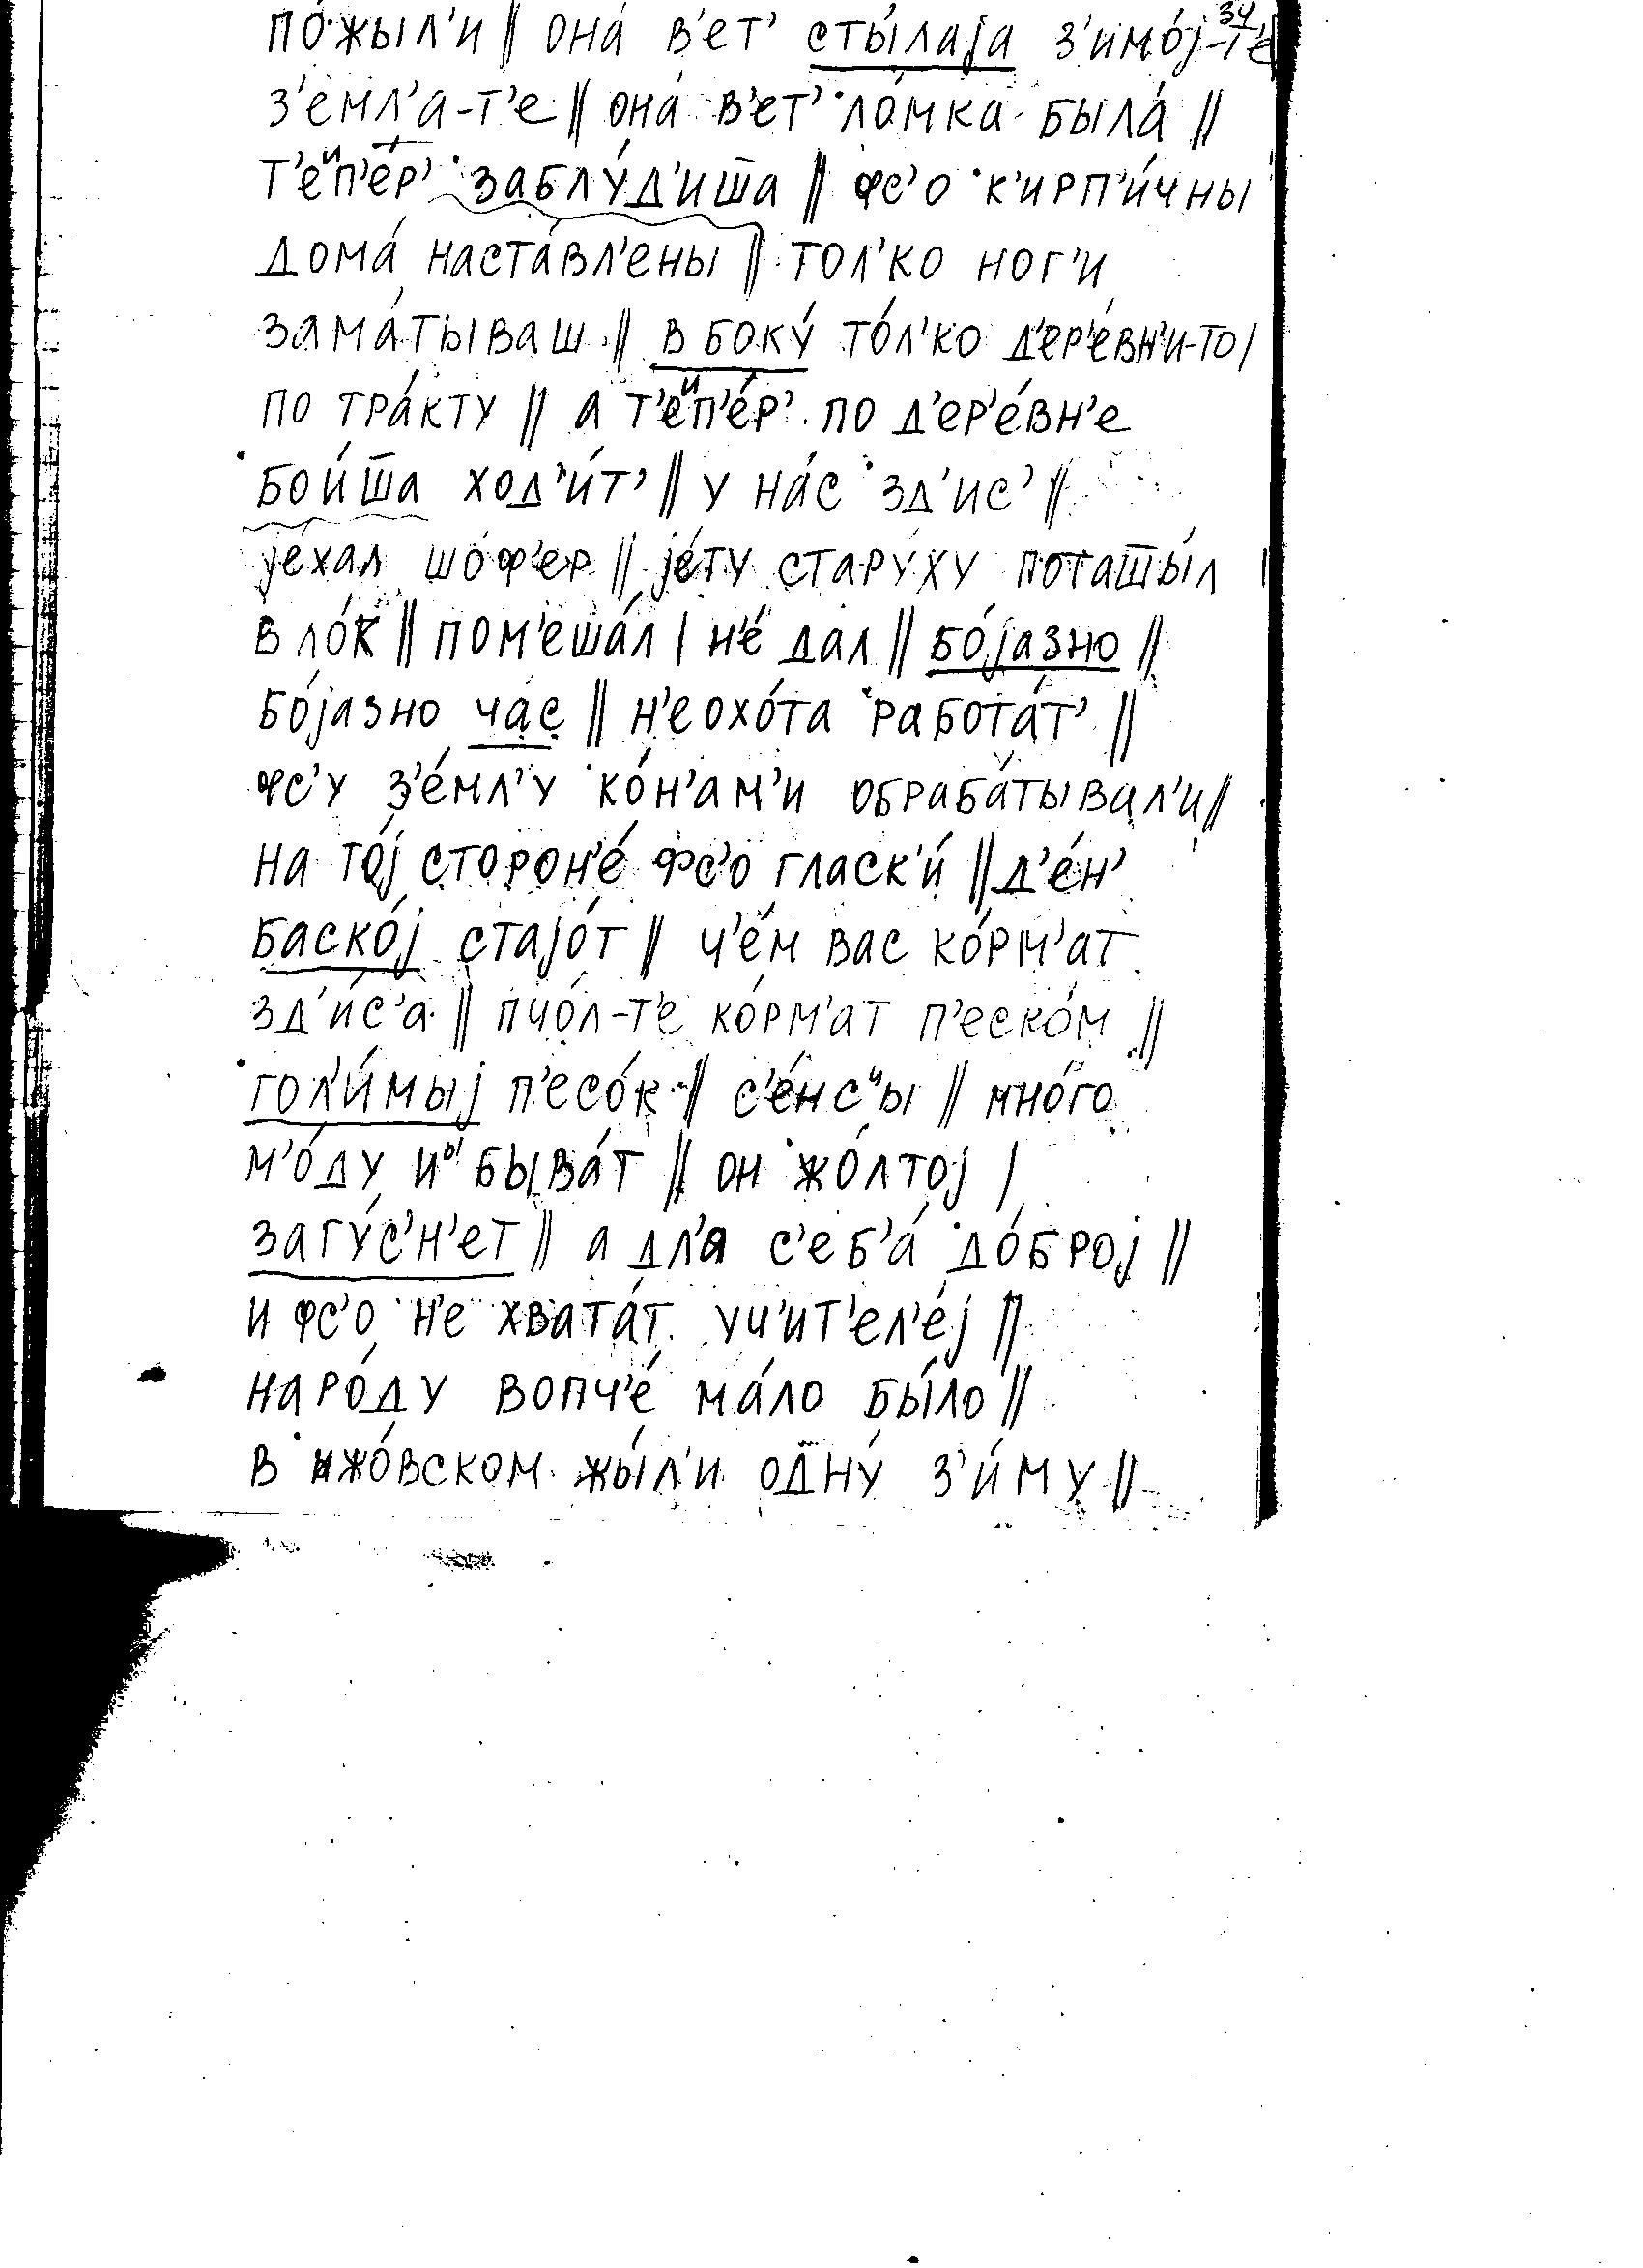 34
по́жыл'и || она́ в'ет' сты́лаjа з'имо́j-т'е
з'емл'а-т'е || она́ в'ет' ло́мка была́ ||
т'еип'е́р' заблу́д'ит̅ш̅а || фс'о к'ирп'и́чны
дома́ наста́вл'ены || тол'ко ног'и
зама́тываш || в боку́ то́л'ко д'ер'е́вн'и-то |
по тра́кту || а т'еип'е́р' по д'ер'е́вн'е
бои́т̅ш̅а ход'и́т' || у на́с зд'ис' ||
jе́хал шо́ф'ер || jе́ту стару́ху
в ло́к || пом'еша́л | н'е́ дал || бо́jазно ||
бо́jазно ча́с || н'еохо́та работа́т' ||
фс'у з'е́мл'у ко́н'ам'и обраба́тывал'и ||
на то́j сторон'е́ фс'о гласк'и́ || д'е́н'
баско́j стаjо́т || ч'е́м вас ко́рм'ат
зд'и́с'а || пчо́л-т'е ко́рм'ат п'еско́м ||
гол'и́мыj п'есо́к || с'е́нсчы || мно́го
м'о́ду и быва́т || он жо́лтоj |
загу́с'н'ет || а дл'я с'еб'а́ до́броj ||
и фс'о н'е хвата́т уч'ит'ел'е́j ||
наро́ду вопч'е́ ма́ло бы́ло ||
в ижо́вском жы́л'и одну́ з'и́му ||